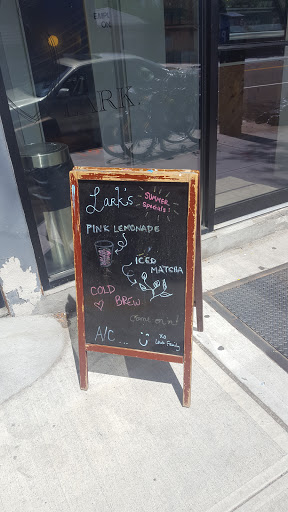 ARK.
Lark's
SUMMER
Specials!
PINK LEMONADE
ICED
MATCHA
COLD
BREW
come on in!
A/C ...
XO
Lark Family